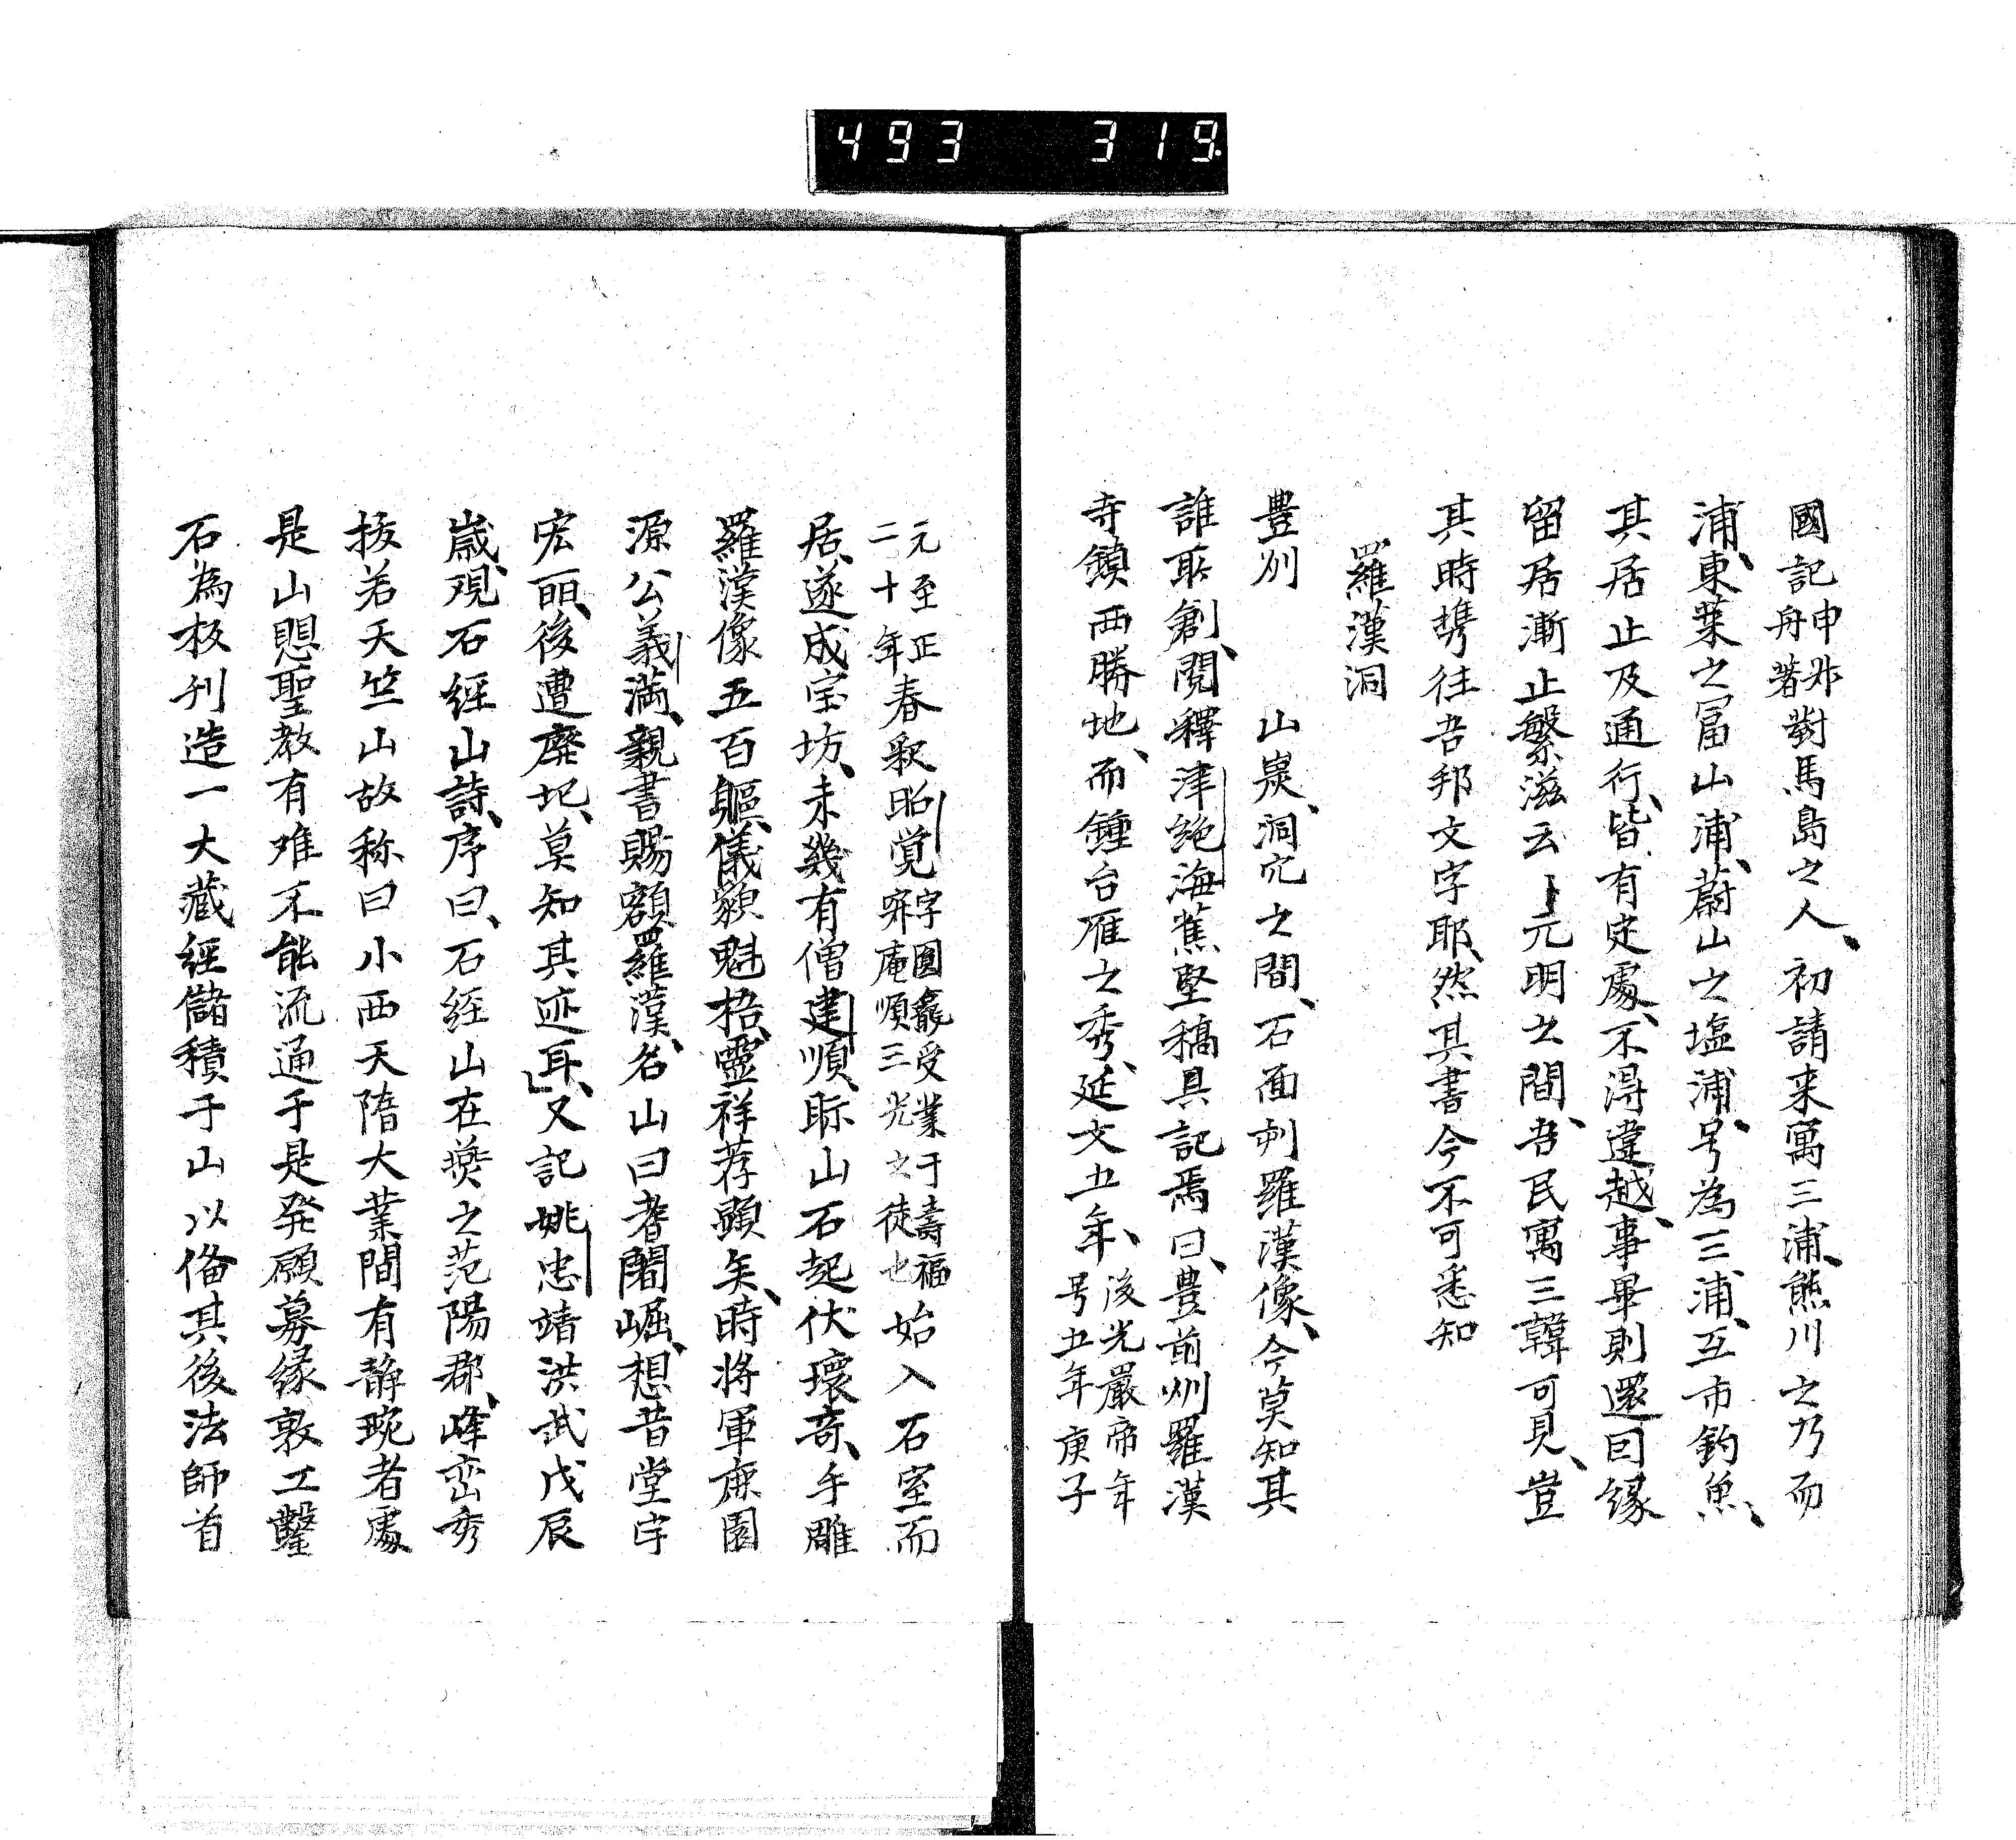 493 319
國記申非舟著對馬島之人、初請来寓三浦、熊川之乃而
浦、東莱之冨山浦、蔚山之塩浦、号為三浦、互市釣魚、
其居止及通行、皆有定處、不得違越、事畢則還因縁
留居漸止繁滋云、元明之間、吾民寓三韓可見、豈
其時携往吾邦文字耶、然其書今不可悉知
羅漢洞
豊州 山泉、洞穴之間、石面刻羅漢像、今莫知其
誰所創、閲釋津絶海蕉堅稿具記焉曰、豊前州羅漢
寺鎮西勝地、而鍾台雁之秀、延文五年、後光嚴帝年号五年庚子
元至正二十年春釈昭覚字圓龕受業于壽福寂庵順三光之徒也始入石室而
居、遂成宝坊、未幾有僧建順、眎山石起伏瓌奇、手雕
羅漢像五百軀、儀貌魁梧、靈祥荐顕矣、時将軍鹿園
源公義満、親書賜額羅漢、名山曰耆闍崛、想昔堂宇
宏丽、後遭廃圮、莫知其迹耳、又記姚忠靖洪武戊辰
歳、观石經山詩、序曰、石経山在燕之范陽郡、峰峦秀
拔若天竺山故称曰小西天隋大業間有静琬者處
是山愳聖教有难不能流通于是発願募縁敦工鑿
石為板刊造一大藏經儲積于山以俻其後法師首